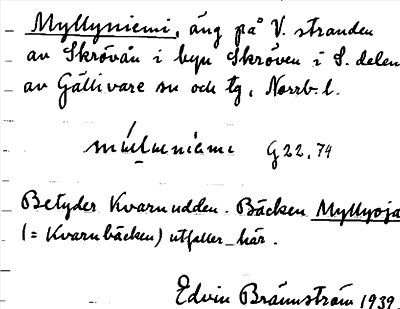 Myllyniemi, äng på V. stranden
av Skrövån i byn Skröven i S. delen
av Gällivare sn och tg, Norrb. l.
G 22, 74
Betyder Kvarnudden. Bäcken Myllyoja
(= Kvarnbäcken) utfaller här.
Edvin Brännström 1939.